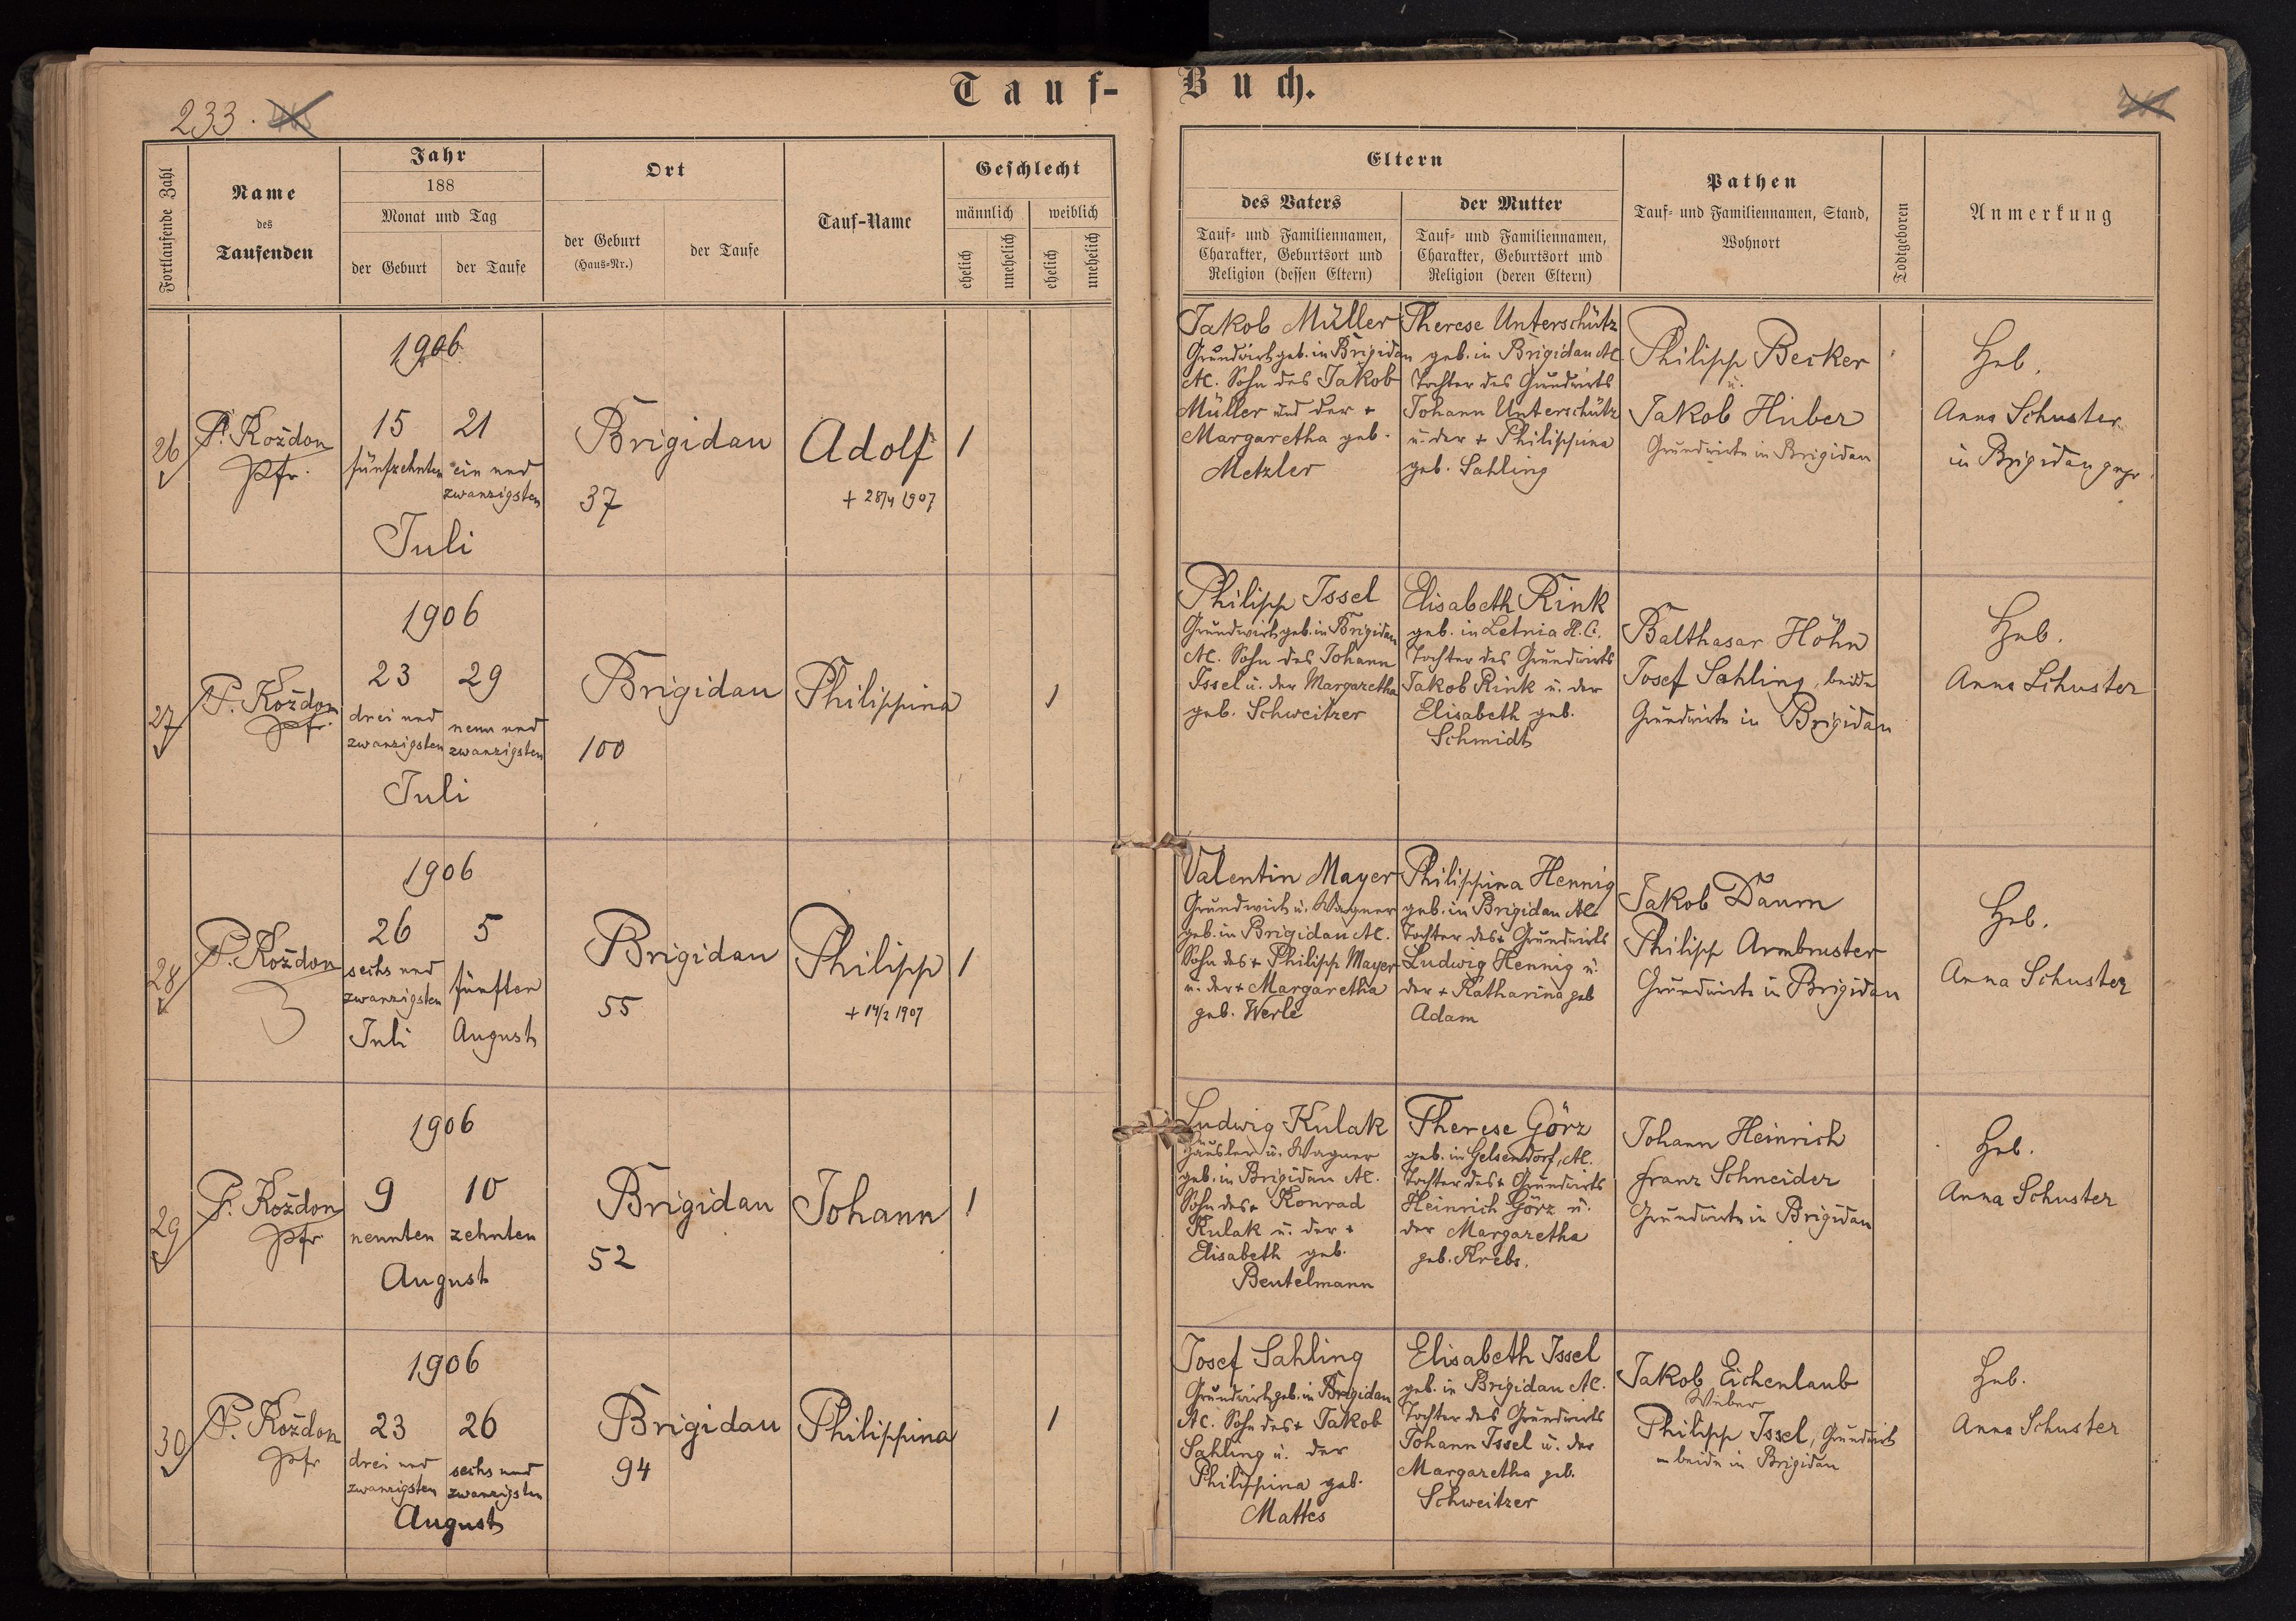 Tauf-Buch.
233.
Fortlaufende Zahl
Name
des
Taufenden
Jahr
188
Monat und Tag
der Geburt
der Taufe
Ort
der Geburt
(Haus-Nr.)
der Taufe
Tauf-Name
Geschlecht
männlich
weiblich
ehelich
unehelich
ehelich
unehelich
Eltern
des Vaters
Tauf- und Familiennamen,
Charakter, Geburtsort und
Religion (dessen Eltern)
der Mutter
Tauf- und Familiennamen,
Charakter, Geburtsort und
Religion (deren Eltern)
Pathen
Tauf- und Familiennamen, Stand,
Wohnort
Todtgeboren
Anmerkung
26
P. Koždon
Pfr.
1906
15
fünfzehnten
21
ein und
zwanzigsten
Juli
Brigidau
37
Adolf
+ 28/4 1907
1
Jakob Müller
Grundwirt geb. in Brigidau
AC. Sohn des Jakob
Müller und der +
Margaretha geb.
Metzler
Therese Unterschütz
geb. in Brigidau AC
Tochter des Grundwirts
Johann Unterschütz
u. der + Philippina
geb. Sahling
Philipp Becker
u.
Jakob Huber
Grundwirte in Brigidau
Heb.
Anna Schuster
in Brigidau gepr.
27
P. Koždon
Pfr.
1906
23
drei und
zwanzigsten
29
neun und
zwanzigsten
Juli
Brigidau
100
Philippina
1
Philipp Issel
Grundwirt geb. in Brigidau
AC. Sohn des Johann
Issel u. der Margaretha
geb. Schweitzer
Elisabeth Rink
geb. in Letnia H.C.
Tochter des Grundwirts
Jakob Rink u. der
Elisabeth geb.
Schmidt
Balthasar Höhn
Josef Sahling, beide
Grundwirte in Brigidau
Heb.
Anna Schuster
28
P. Koždon
1906
26
sechs und
zwanzigsten
Juli
5
fünften
August
Brigidau
55
Philipp
+ 14/2 1907
1
Valentin Mayer
Grundwirt u. Wagner
geb. in Brigidau AC.
Sohn des + Philipp Mayer
u. der + Margaretha
geb. Werle
Philippina Hennig
geb. in Brigidau AC
Tochter des + Grundwirts
Ludwig Hennig u.
der + Katharina geb
Adam
Jakob Daum
Philipp Armbruster
Grundwirte in Brigidau
Heb.
Anna Schuster
29
P. Koždon
Pfr
1906
9
neunten
10
zehnten
August
Brigidau
52
Johann
1
Ludwig Kulak
Häusler u. Wagner
geb. in Brigidau AC.
Sohn des + Konrad
Kulak u. der +
Elisabeth geb.
Beutelmann
Therese Görz
geb. in Gelsendorf, AC.
Tochter des + Grundwirts
Heinrich Görz u.
der Margaretha
geb. Krebs.
Johann Heinrich
Franz Schneider
Grundwirte in Brigidau
Heb.
Anna Schuster
30
P. Koždon
Pfr
1906
23
drei und
zwanzigsten
26
sechs und
zwanzigsten
August
Brigidau
94
Philippina
1
Josef Sahling
Grundwirt geb. in Brigidau
AC. Sohn des + Jakob
Sahling u. der
Philippina geb.
Mattes
Elisabeth Issel
geb. in Brigidau AC.
Tochter des Grundwirts
Johann Issel u. der
Margaretha geb.
Schweitzer
Jakob Eichenlaub
Weber
Philipp Issel, Grundwirt
beide in Brigidau
Heb.
Anna Schuster